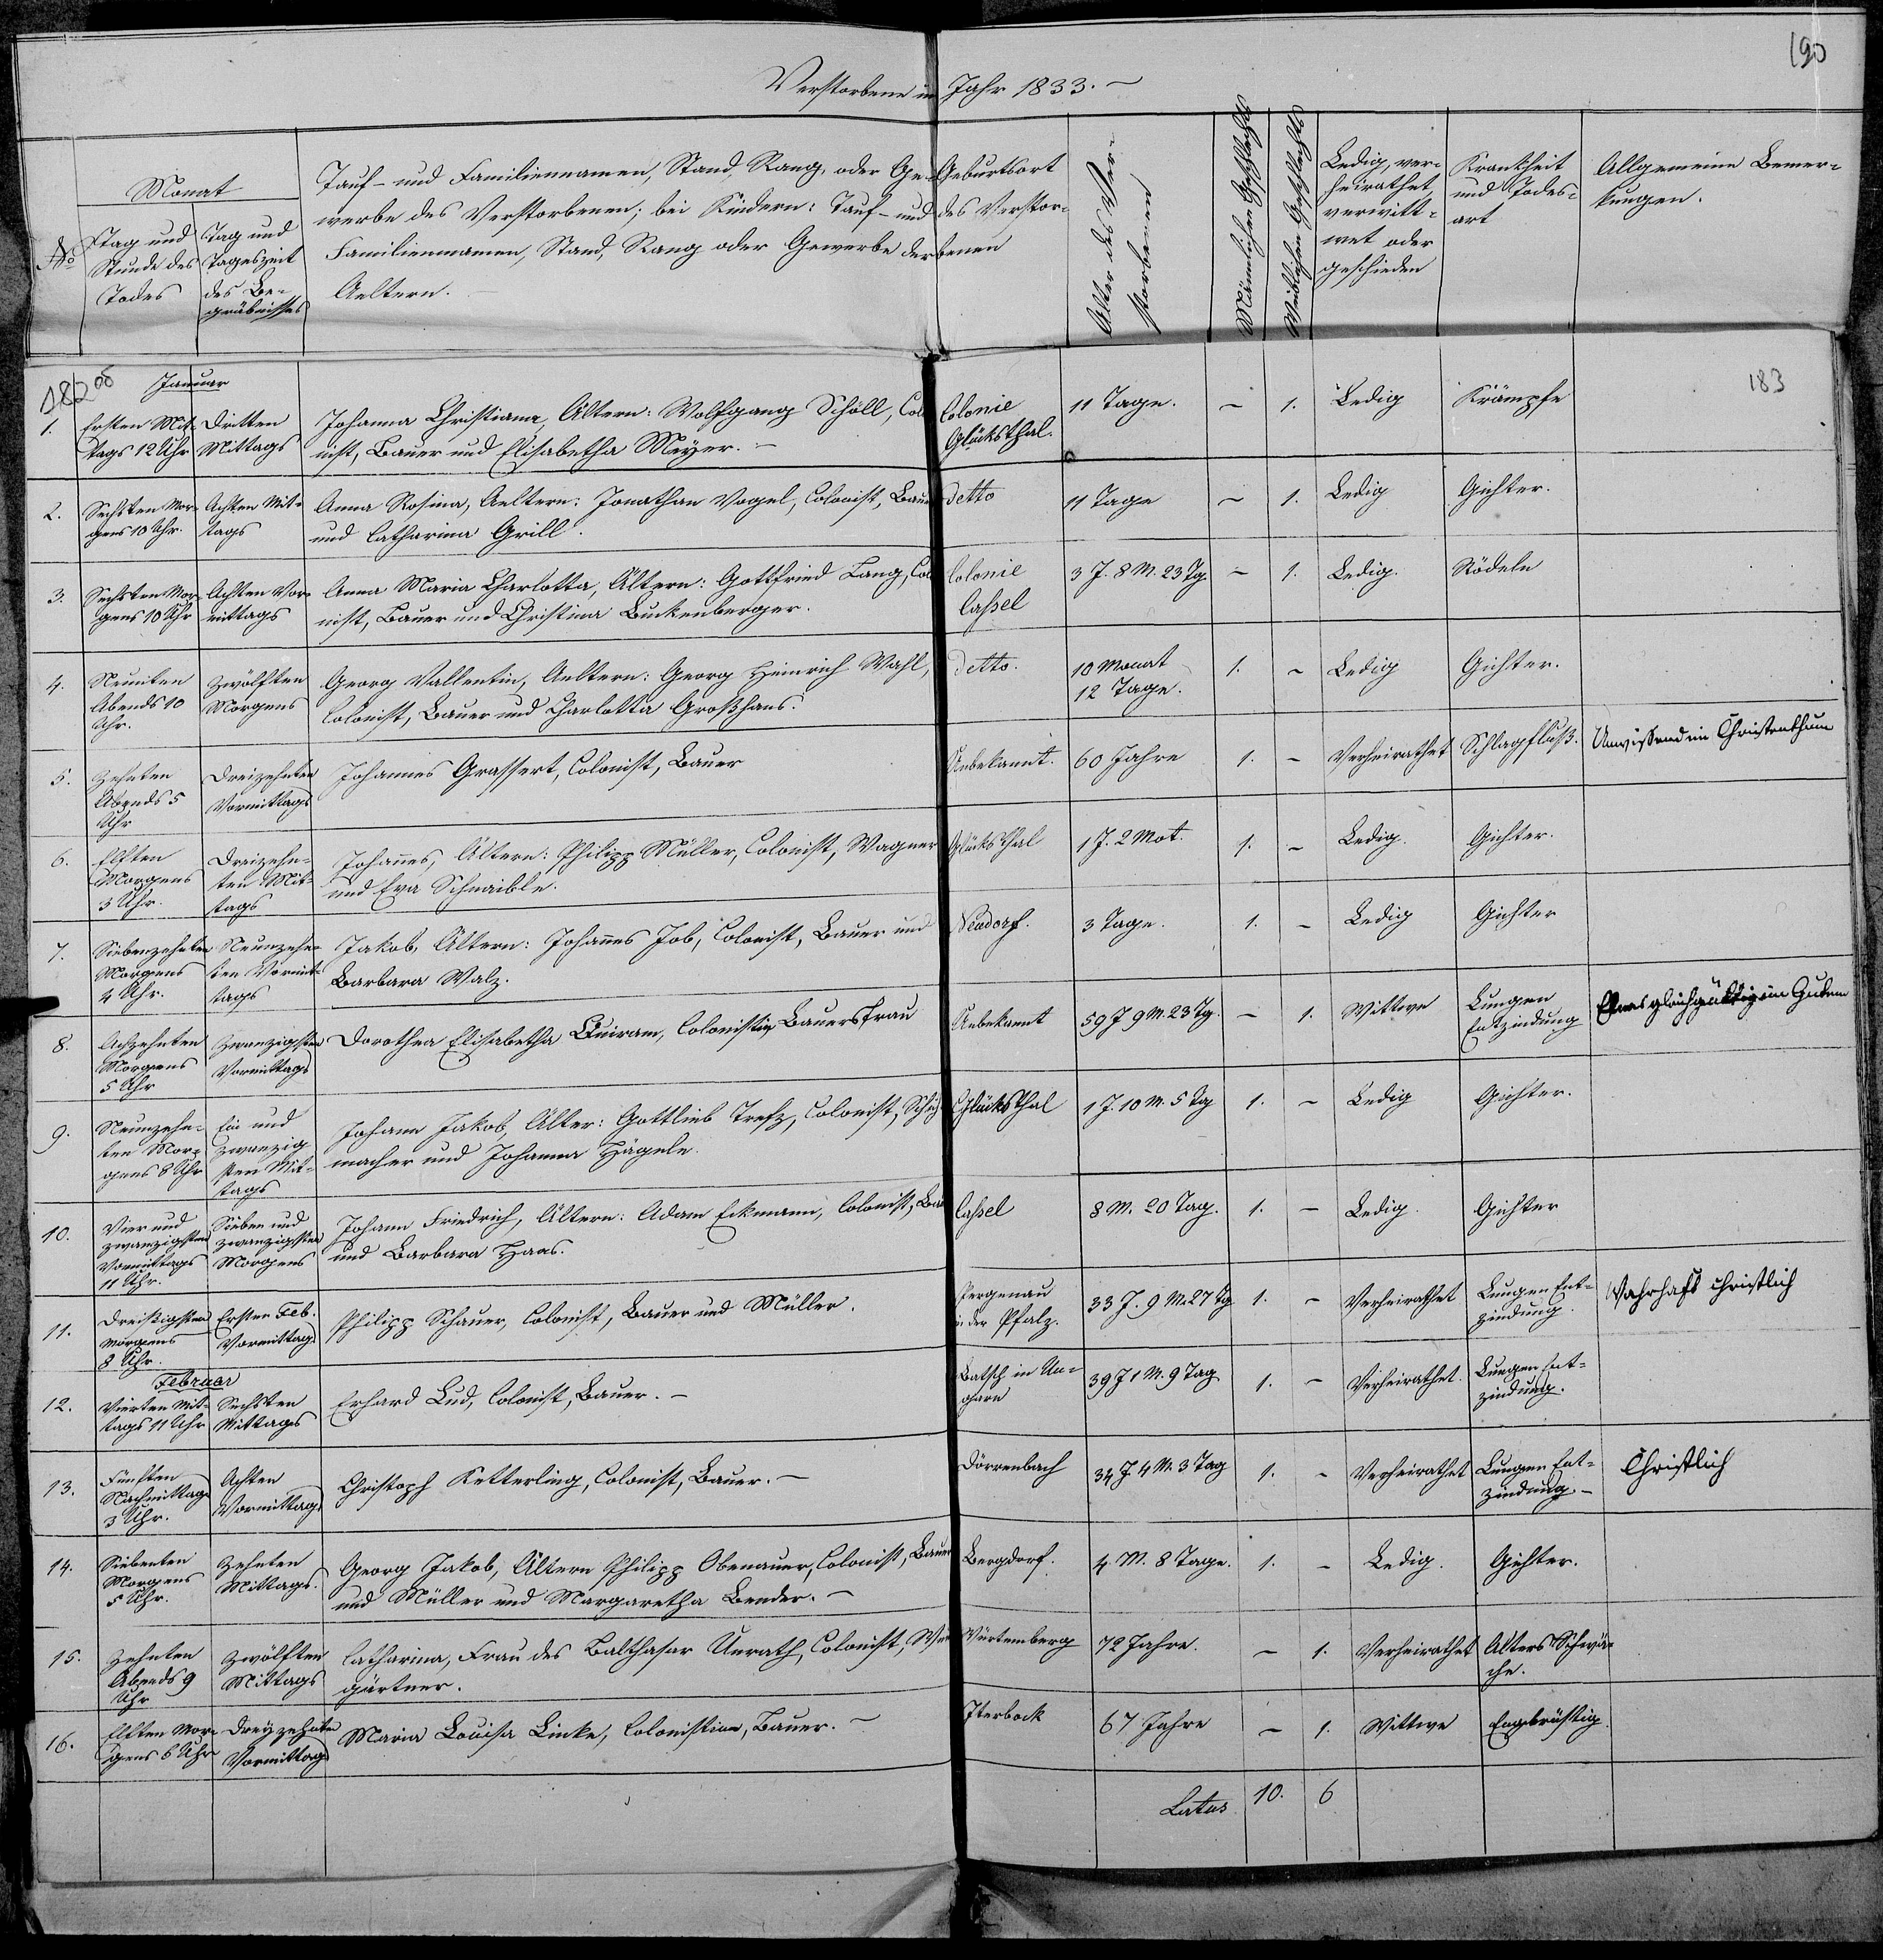 190
Verstorbene im Jahr 1833.
Monat
No
Tag und Stunde des Todes
Tag und Tageszeit des Begräbnisses
Tauf- und Familiennamen, Stand, Rang oder Gewerbe des Verstorbenen; bei Kindern: Tauf- und Familiennamen, Stand, Rang oder Gewerbe der Aeltern.
Geburtsort des Verstorbenen
Alter des Verstorbenen
Männlichen Geschlechts
Weiblichen Geschlechts
Ledig, verheirathet, verwittwet oder geschieden
Krankheit und Todesart
Allgemeine Bemerkungen.
182 об
183
Januar
1. Ersten Mittags 12 Uhr Dritten Mittags Johanna Christiana, Ältern: Wolfgang Schöll, Colonist, Bauer und Elisabetha Meyer. Colonie Glücksthal. 11 Tage. – 1. Ledig Krämpfe
2. Sechsten Morgens 10 Uhr. Achten Mittags Anna Rosina, Aeltern: Jonathan Vogel, Colonist, Bauer und Catharina Grill. detto 11 Tage – 1. Ledig Gichter.
3. Sechsten Morgens 10 Uhr Achten Vormittags Anna Maria Charlotta, Ältern: Gottfried Lang, Colonist, Bauer und Christina Buckenberger. Colonie Cassel 3 J. 8 M. 23 Tg. – 1. Ledig. Rödeln
4. Neunten Abends 10 Uhr. Zwölften Morgens Georg Vallentin, Aeltern: Georg Heinrich Wahl, Colonist, Bauer und Charlotta Großhans. detto. 10 Monat 12 Tage. 1. – Ledig Gichter.
5. Zehnten Abends 5 Uhr Dreizehnten Vormittags Johannes Grassert, Colonist, Bauer Unbekannt. 60 Jahre 1. – Verheirathet Schlagfluß. Unwissend im Christenthum
6. Elften Morgens 3 Uhr. Dreizehnten Mittags Johannes, Ältern: Philipp Müller, Colonist, Wagner und Eva Schnaible. Glücksthal 1 J. 2 Mot. 1. – Ledig. Gichter.
7. Siebenzehnten Morgens 4 Uhr. Neunzehnten Vormittags Jakob, Ältern: Johannes Job, Colonist, Bauer und Barbara Walz. Neudorf. 3 Tage. 1. – Ledig Gichter
8. Achzehnten Morgens 5 Uhr Zwanzigsten Vormittags Dorothea Elisabetha Quiram, Colonistin, Bauersfrau Unbekannt 59 J 9 M. 23 Tg. – 1. Wittwe Lungen Entzindung Etwas gleichgültig im Guten
9. Neunzehnten Morgens 8 Uhr Ein und zwanzigsten Mittags Johann Jakob, Älter: Gottlieb Trefz, Colonist, Schuhmacher und Johanna Hägele. Glücksthal 1 J. 10 M. 5 Tg 1. – Ledig Gichter.
10. Vier und zwanzigsten Vormittags 11 Uhr. Sieben und zwanzigsten Morgens Johann Friedrich, Ältern: Adam Eckmann, Colonist, Bauer und Barbara Haas. Cassel 8 M. 20 Tag. 1. – Ledig. Gichter
11. Dreisigsten Morgens 8 Uhr. Ersten Feb. Vormittags Philipp Schauer, Colonist, Bauer und Müller. in der Pfalz. 33 J. 9 M. 27 Tg 1. – Verheirathet Lungen Entzindung. Wahrhaft christlich
Februar
12. Vierten Mittags 11 Uhr Sechsten Mittags Erhard Lud, Colonist, Bauer. Batsch in Ungarn 39 J 1 M. 9 Tag 1. – Verheirathet. Lungen Entzindung.
13. Fünften Nachmittags 3 Uhr. Achten Vormittags Christoph Ketterling, Colonist, Bauer. Dörrenbach 34 J. 4 M. 3 Tag 1. – Verheirathet Lungen Entzindung. Christlich
14. Siebenten Morgens 5 Uhr. Zehnten Mittags. Georg Jakob, Ältern Philipp Obenauer, Colonist, Bauer und Müller und Margaretha Bender. Bergdorf. 4 M. 8 Tage. 1. – Ledig. Gichter.
15. Zehnten Abends 9 Uhr Zwölften Mittags Catharina, Frau des Balthasar Unrath, Colonist, Weingärtner. Würtemberg 72 Jahre. – 1. Verheirathet Alters Schwäche.
16. Elften Morgens 6 Uhr Dreyzehnten Vormittags Maria Louisa Linke, Colonistin, Bauer. Iterbock 67 Jahre – 1. Wittwe Engbrüstig.
Latus 10. 6